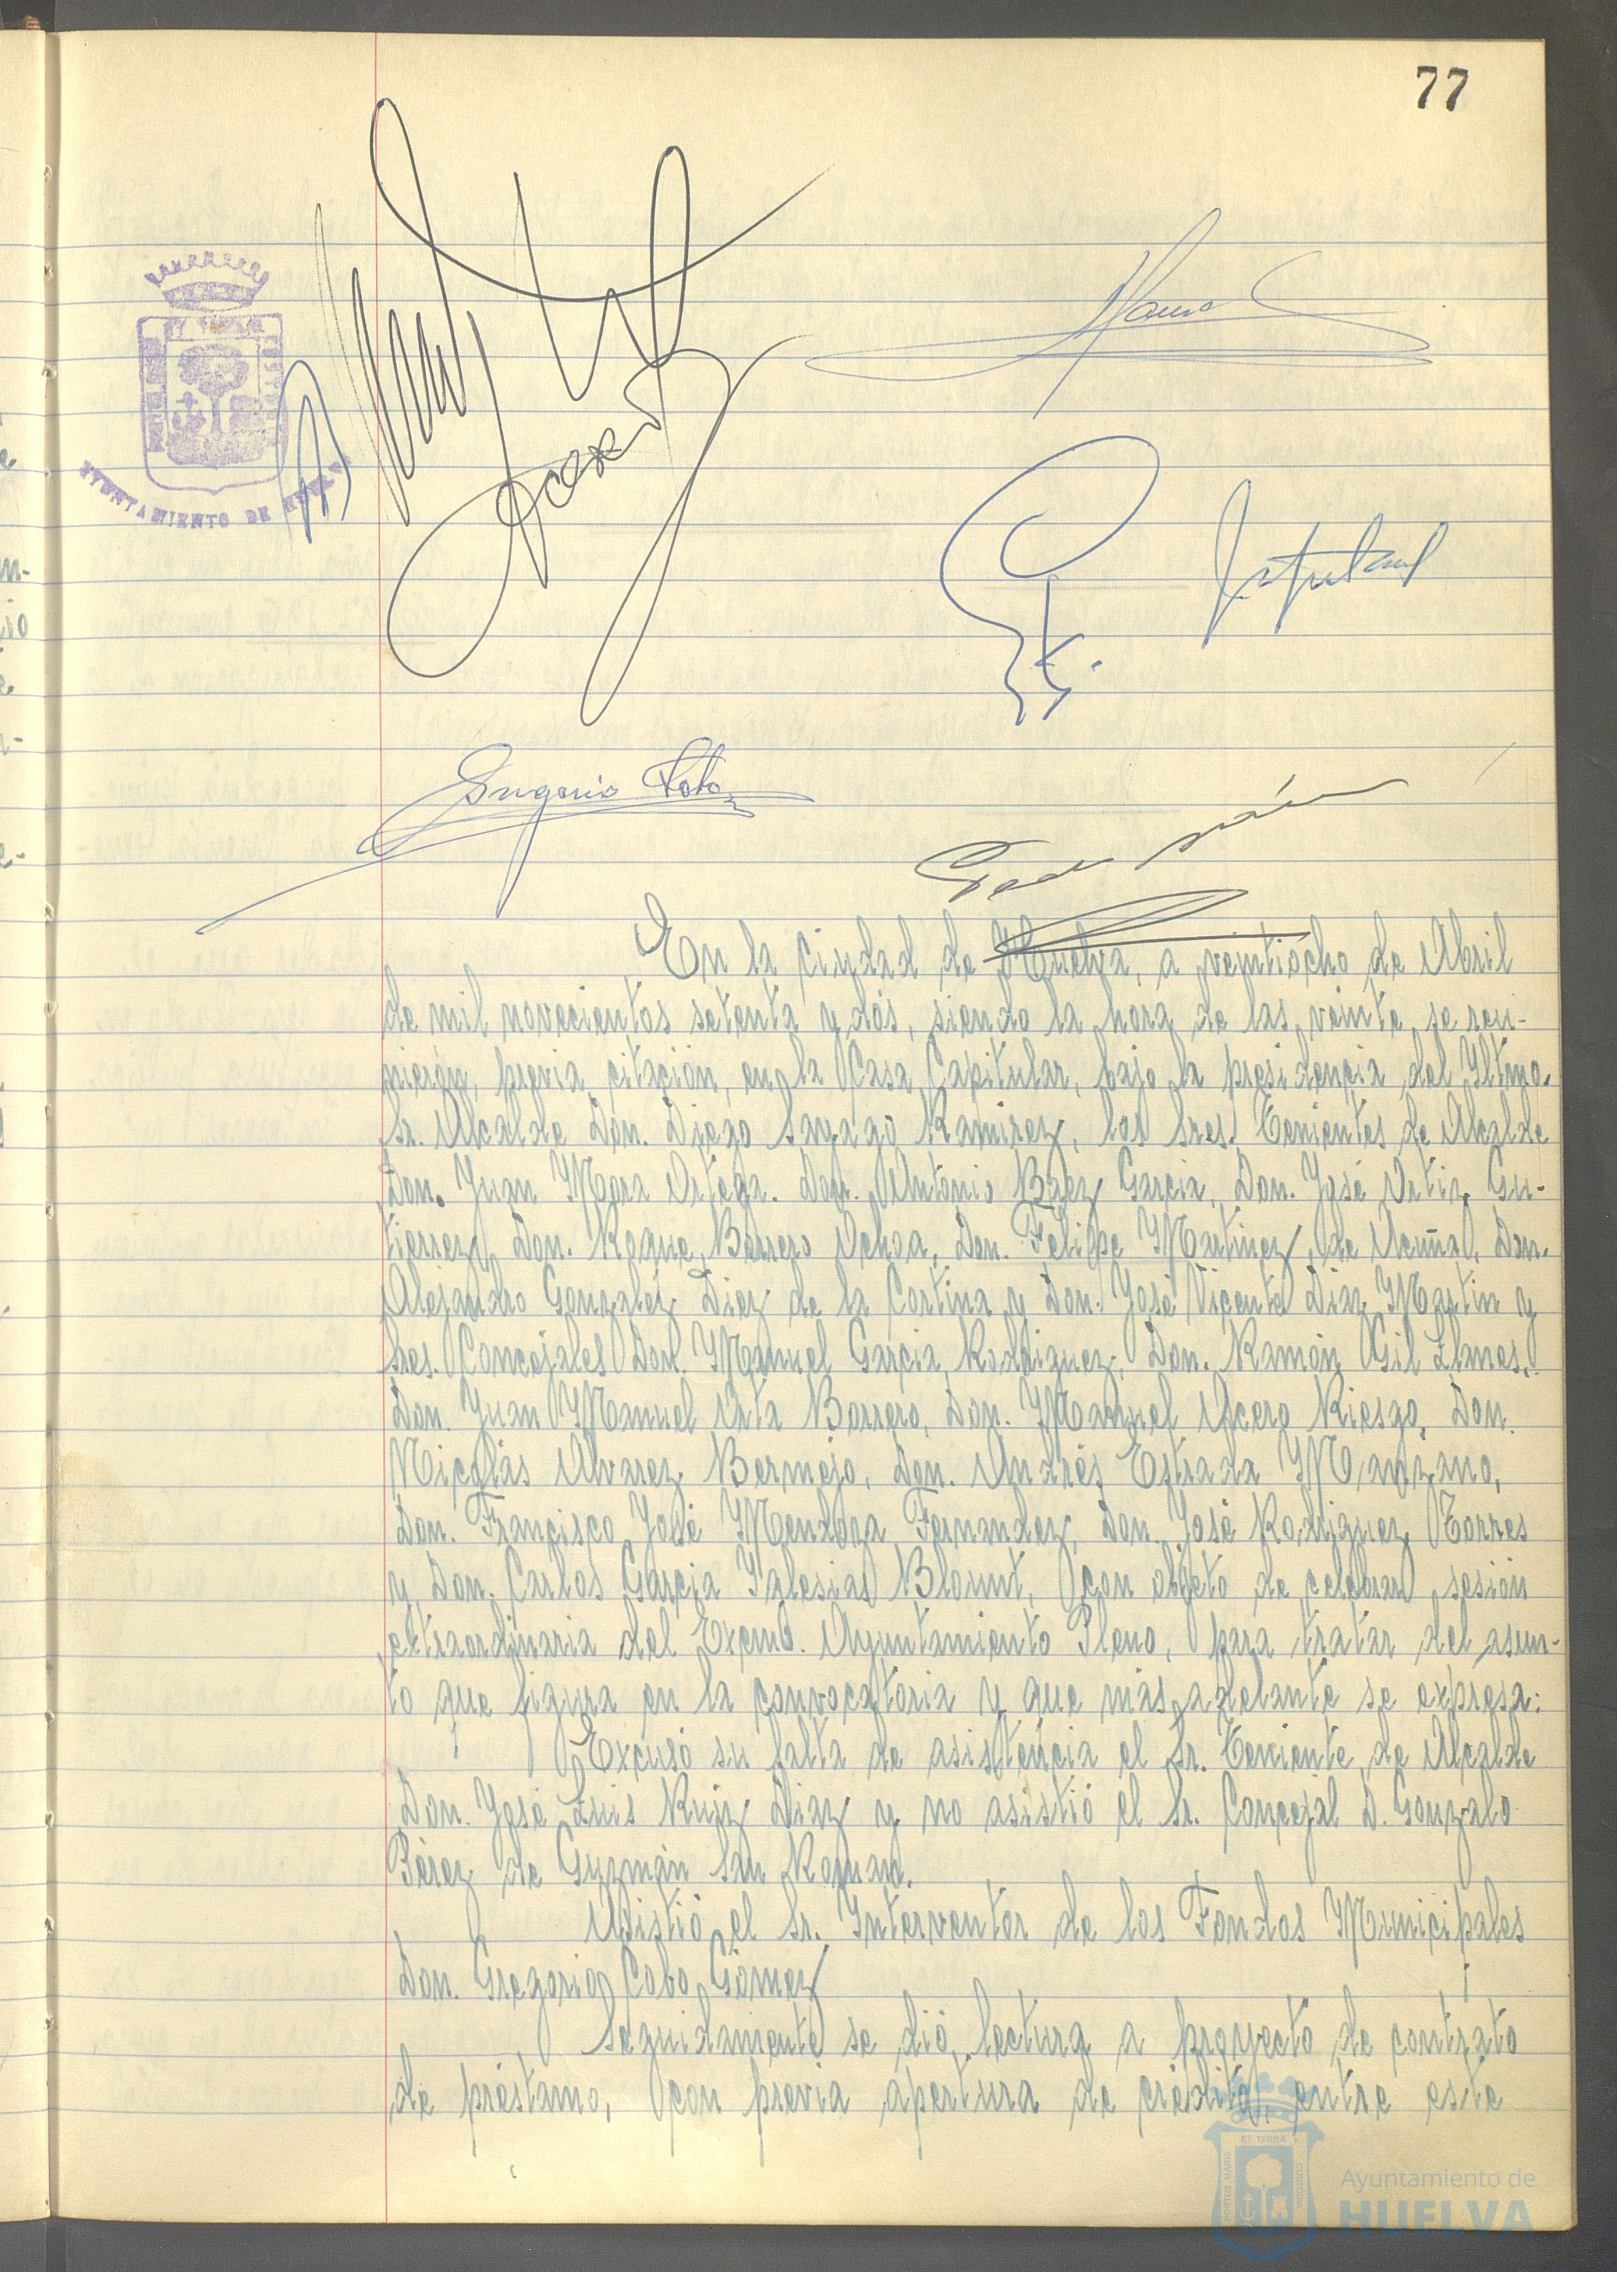 77
AYUNTAMIENTO DE HUELVA
Eugenio
En la ciudad de Huelva, a veintiocho de Abril
de mil novecientos setenta y dos, siendo la hora de las veinte, se reu-
nieron, previa citación, en la Casa Capitular, bajo la presidencia del Iltmo.
Sr. Alcalde Don. Diego Sayago Ramirez, los Sres. Tenientes de Alcalde
Don. Juan Mora Ortega. Don. Antonio Baez Garcia, Don. José Ortiz Gu-
tierrez, Don. Roque Borrero Ochoa, Don. Felipe Martinez de Acuña, Don.
Alejandro Gonzalez Diez de la Cortina y Don. José Vicente Diaz Martin y
Sres. Concejales Don. Manuel Garcia Rodriguez, Don. Ramón Gil Llanes,
Don. Juan Manuel Orta Borrero, Don. Manuel Acero Riesgo, Don.
Nicolás Alvarez Bermejo, Don. Andrés Estrada Manzano,
Don. Francisco José Mendoza Fernandez, Don. José Rodriguez Torres
y Don. Carlos Garcia Iglesias Blount, con objeto de celebrar sesión
extraordinaria del Excmo. Ayuntamiento Pleno, para tratar del asun-
to que figura en la convocatoria y que más adelante se expresa:
Excusó su falta de asistencia el Sr. Teniente de Alcalde
Don. José Luis Ruiz Diaz y no asistió el Sr. Concejal D. Gonzalo
Pérez de Guzmán San Roman.
Asistió el Sr. Interventor de los Fondos Municipales
Don. Gregorio Cobo Gómez
Seguidamente se dió lectura a proyecto de contrato
de préstamo, con previa apertura de crédito entre este
ET TERRÆ
PORTUS MARIS
CUSTODIA
Ayuntamiento de
HUELVA